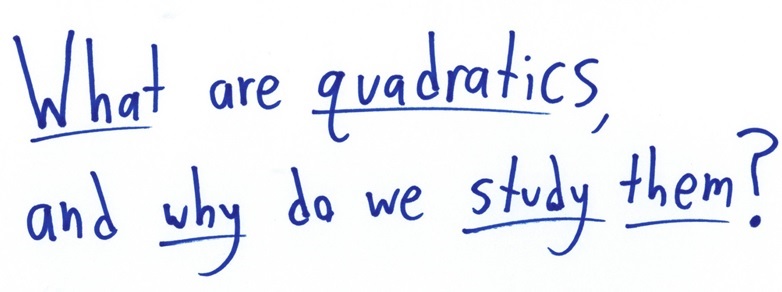 What are quadratics,
and why do we study them?